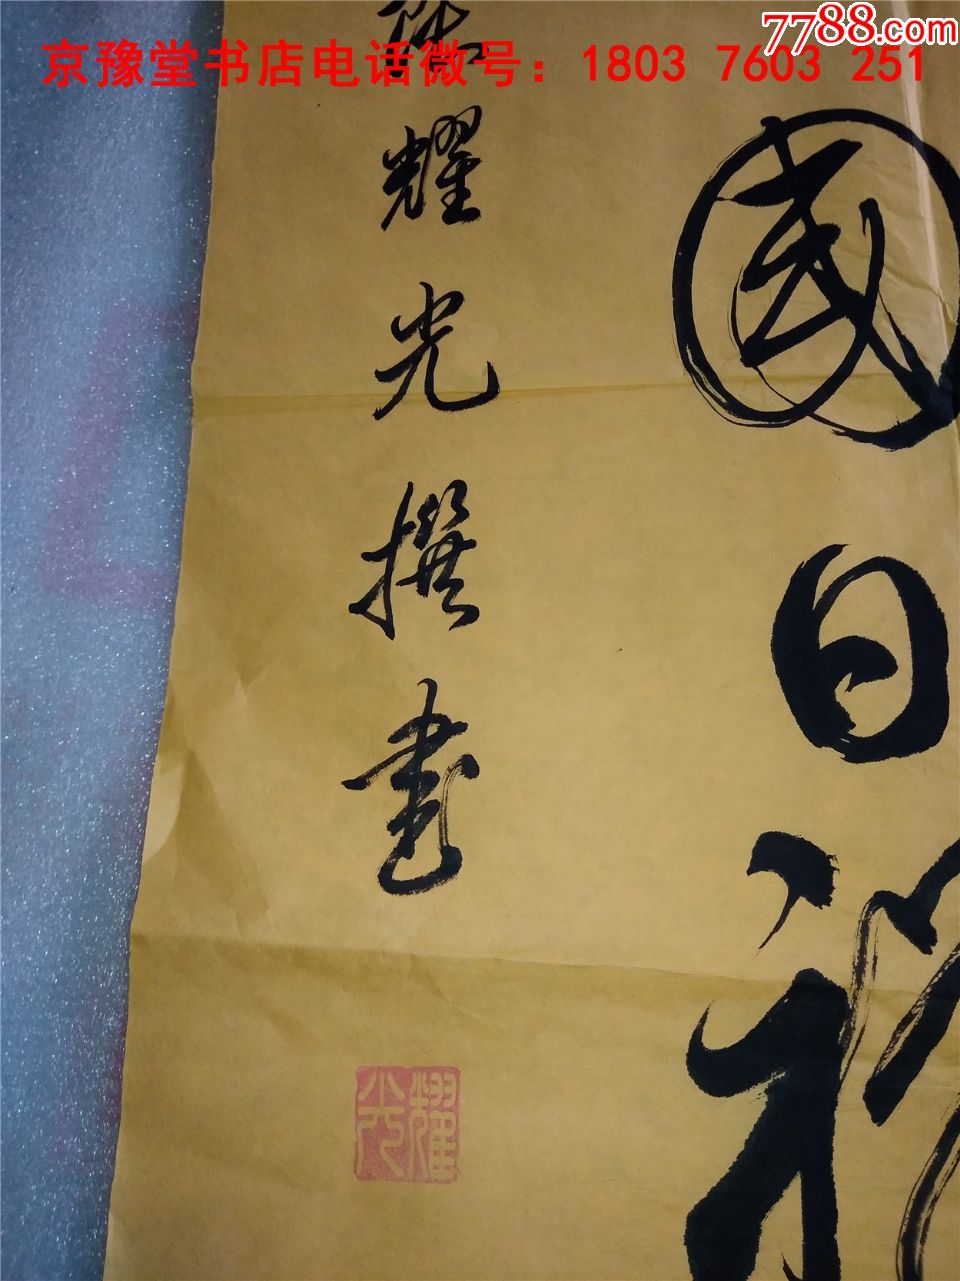 7788.com
京豫堂书店电话微号：1803 7603 251
國日
耀光撰書
耀光